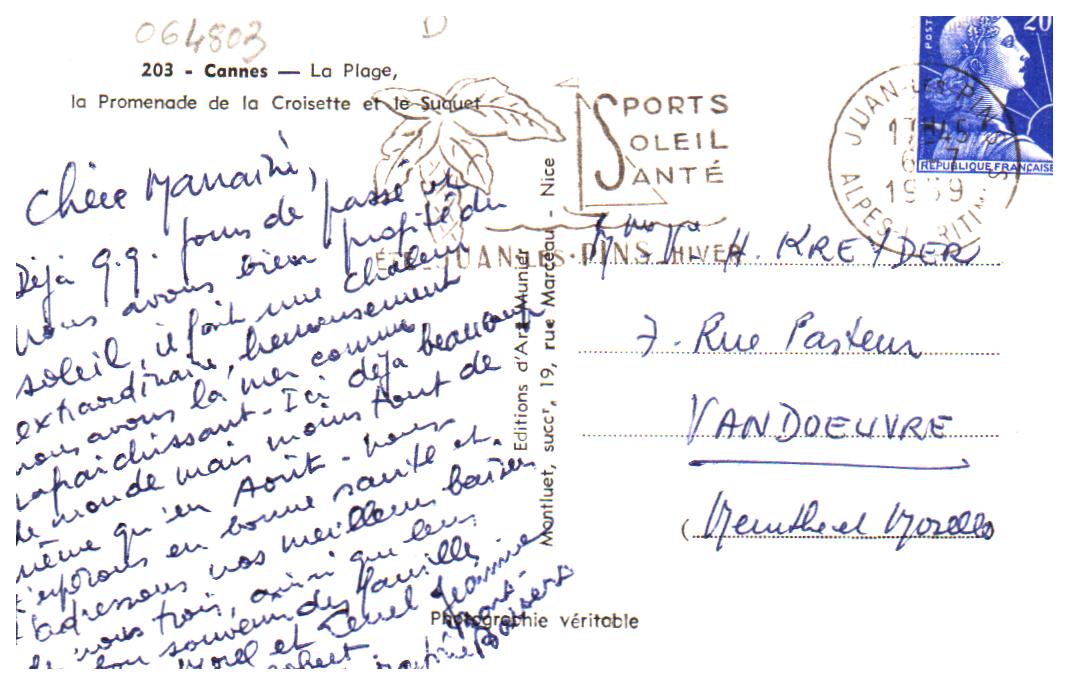 064803
D
203 - Cannes — La Plage,
la Promenade de la Croisette et le Suquet
SPORTS
SOLEIL
SANTÉ
ÉTÉ JUAN-LES-PINS HIVER
JUAN-LES-PINS
17H45
6 7
1959
ALPES MARITIMES
POST
20
REPUBLIQUE FRANÇAISE
Chère
Déjà q.q. jours de passé et
nous avons bien profité du
soleil, il fait une chaleur
extraordinaire, heureusement
nous avons la mer comme
rafraichissant - Ici déjà beaucoup
de monde mais moins tout de
même qu'en Août - nous
t'espérons en bonne santé et
t'adressons nos meilleurs baisers
de nous trois, ainsi que leur
bon souvenir des familles
Morel et Jeannine
Robert
Baisers
Editions d'Art Munier
Montluet, succr, 19, rue Marceau - Nice
Photographie véritable
H. KREYDER
7. Rue Pasteur
VANDOEUVRE
(Meurthe et Moselle)